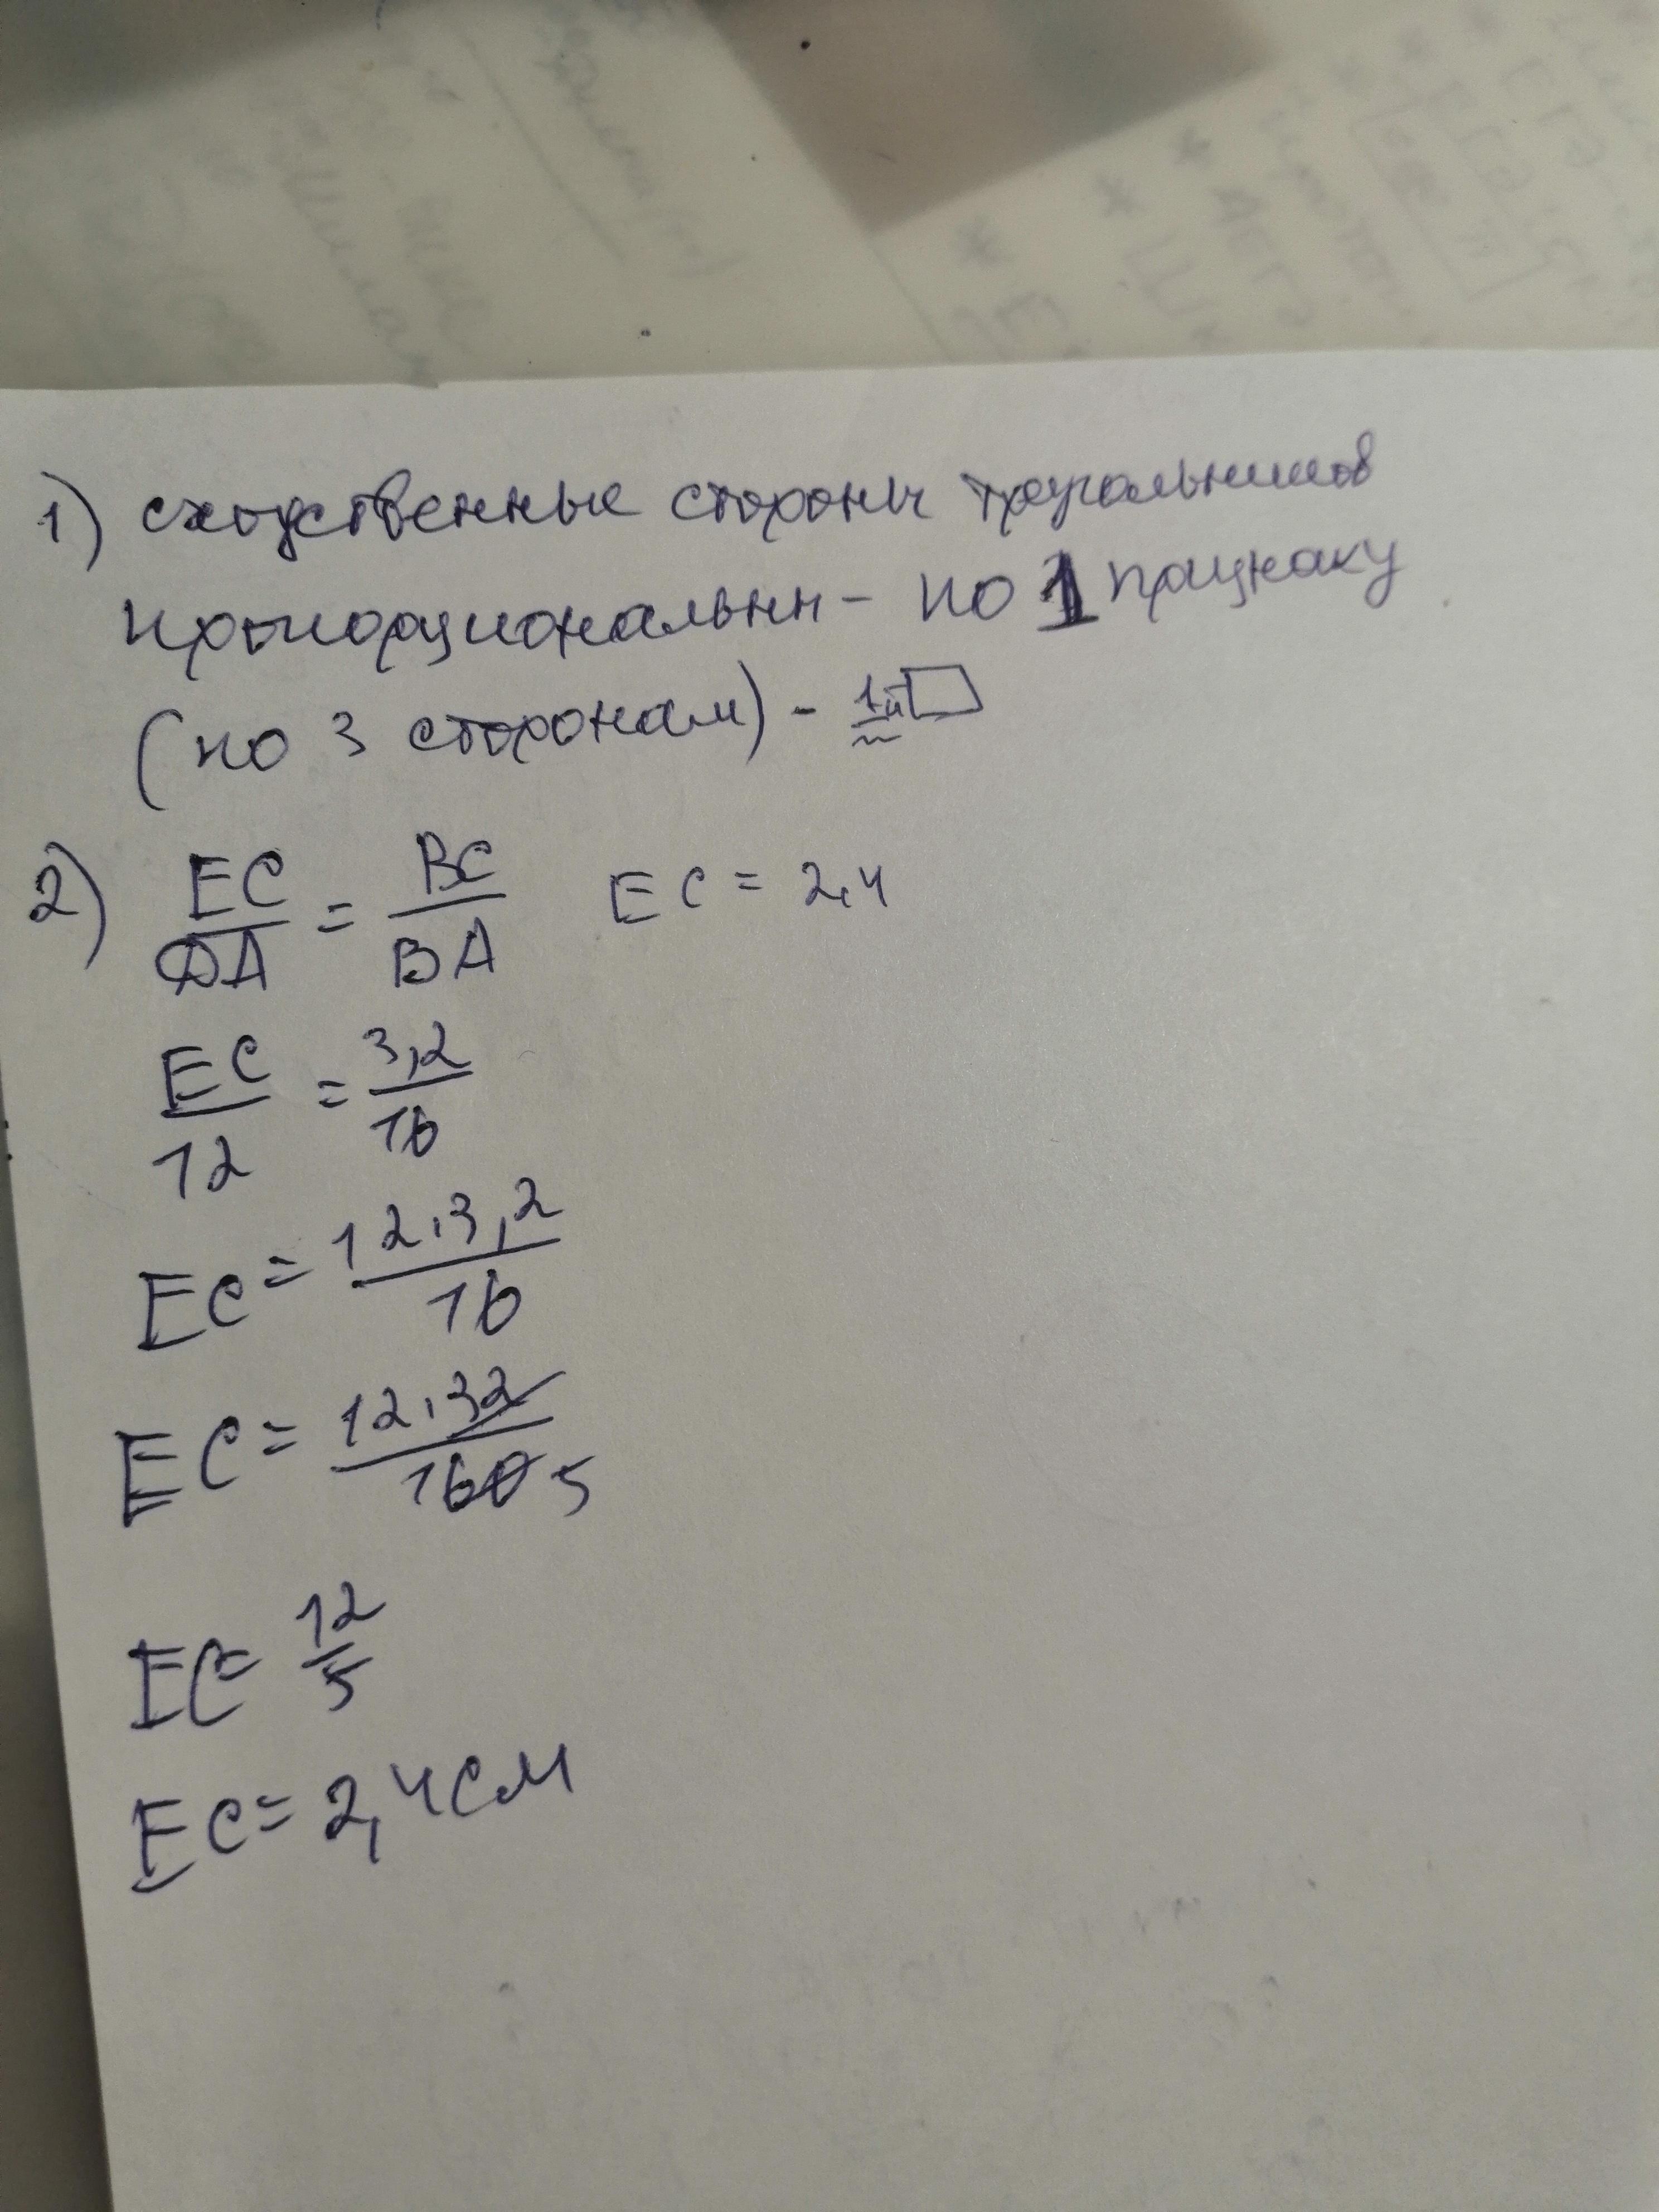 1) сходственные стороны треугольников
пропорциональны - по 1 признаку
(по 3 сторонам) - 1й
2) EC/DA = BC/BA EC = 2,4
EC/12 = 3,2/16
EC = 12·3,2/16
EC = 12·32/160 5
EC = 12/5
EC = 2,4 см